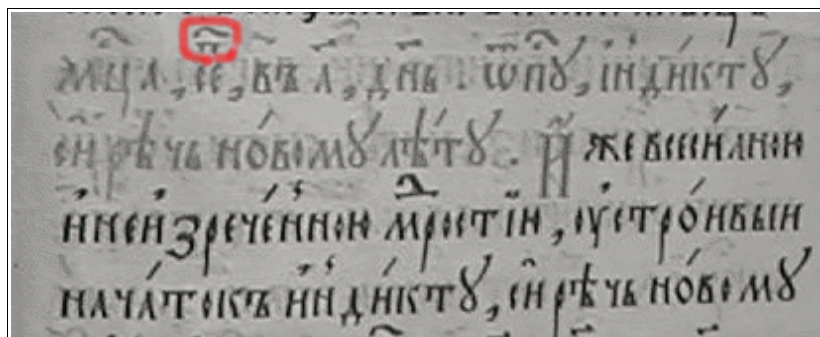 мц҃а, сеⷫ҇, въ а҃, д҃нь . ѿпꙋ, і҆ндикту́,
си рѣчь но́вомꙋ лѣ́тꙋ . И҆же всеси́лною
и҆ неи҆зрече́нною мⷣростїю, ᲂу҆стро́ивыи
нача́токъ и҆нди́ктꙋ, си рѣчь но́вомꙋ